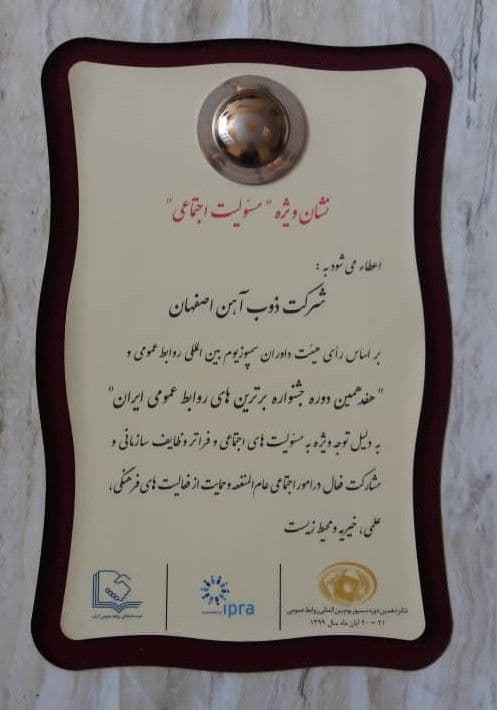 نشان ویژه "مسئولیت اجتماعی"
اعطاء می شود به :
شرکت ذوب آهن اصفهان
بر اساس رأی هیئت داوران سمپوزیوم بین المللی روابط عمومی و
"هفدهمین دوره جشنواره برترین های روابط عمومی ایران"
به دلیل توجه ویژه به مسئولیت های اجتماعی و فراتر وظایف سازمانی و
مشارکت فعال در امور اجتماعی عام المنفعه و حمایت از فعالیت های فرهنگی،
علمی، خیریه و محیط زیست
ipra
شانزدهمین دوره سمپوزیوم بین المللی روابط عمومی
۲۱ - ۲۰ آبان ماه سال ۱۳۹۹